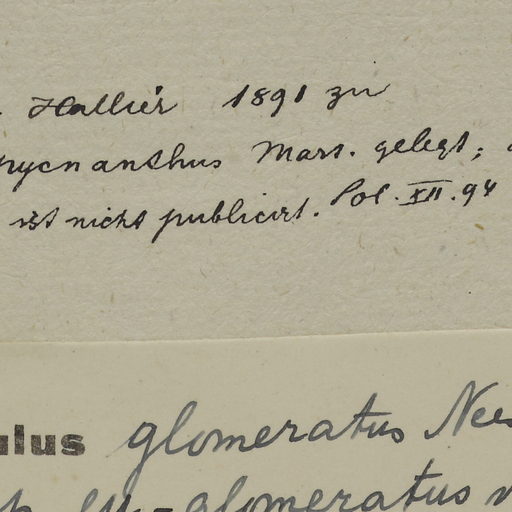 Hallier 1891 zu
pycnanthus Mart. gelegt;
ist nicht publicirt. Sol. XII. 94
ulus glomeratus Nees
eu-glomeratus